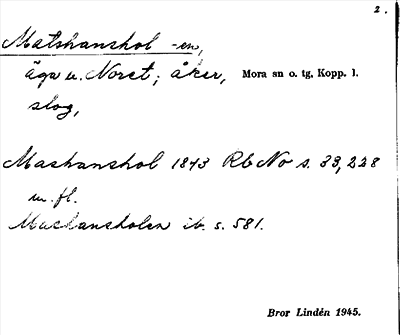 2.
Matshanshol -en,
äga u. Noret; åker, Mora sn o. tg, Kopp. l.
slog,
Mashanshol 1843 Rb No s. 33, 228
m. fl.
Mashansholen ib. s. 581.
Bror Lindén 1945.